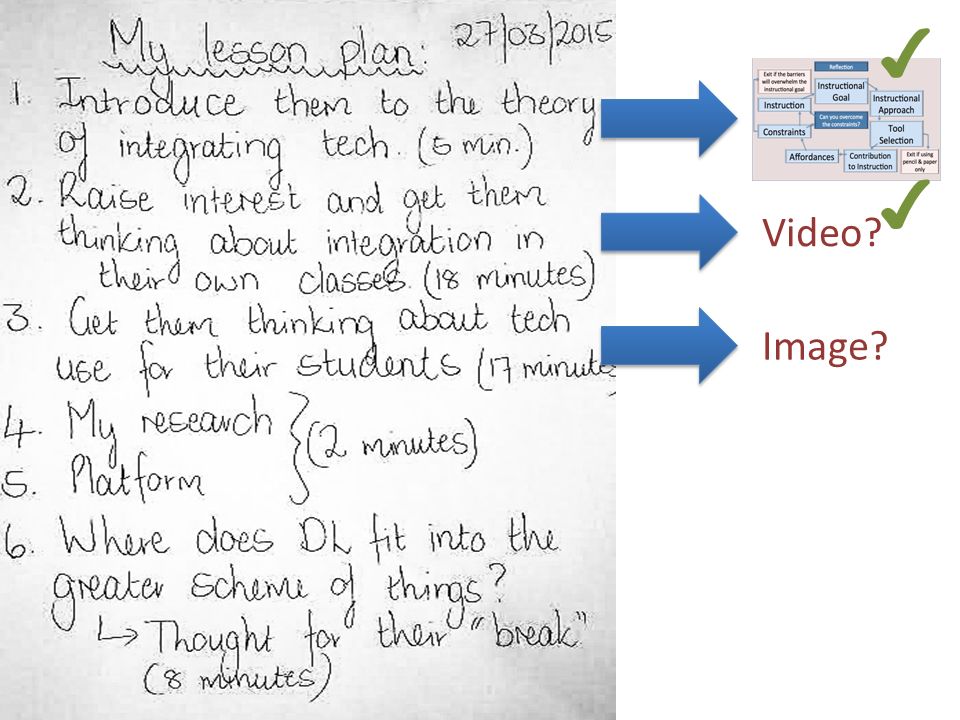 My lesson plan: 27/03/2015
1. Introduce them to the theory
of integrating tech. (5 min.)
2. Raise interest and get them
thinking about integration in
their own classes. (18 minutes)
3. Get them thinking about tech
use for their students (17 minutes
4. My research
(2 minutes)
5. Platform
6. Where does DL fit into the
greater scheme of things?
↳ Thought for their "break"
(8 minutes)
Reflection
Exit if the barriers
will overwhelm the
instructional goal
Instructional
Goal
Instruction
Instructional
Approach
Can you overcome
the constraints?
Constraints
Tool
Selection
Affordances
Contribution
to Instruction
Exit if using
pencil & paper
only
Video?
Image?